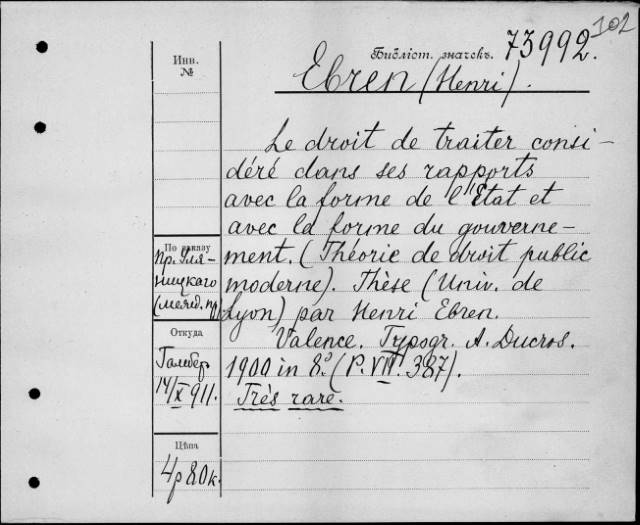 102
Библіот. значекъ. 73992.
Ebren (Henri).
Инв.
№
Le droit de traiter consi-
déré dans ses rapports
avec la forme de l'État et
avec la forme du gouverne-
ment. (Théorie de droit public
moderne). Thèse (Univ. de
Lyon) par Henri Ebren.
Valence. Typogr. A. Ducros.
1900 in 8º (P. VII. 387).
Très rare.
По заказу
пр. Уля-
ницкаго
(межд. пр)
Откуда
14/X 911.
Цѣна
4р 80к.